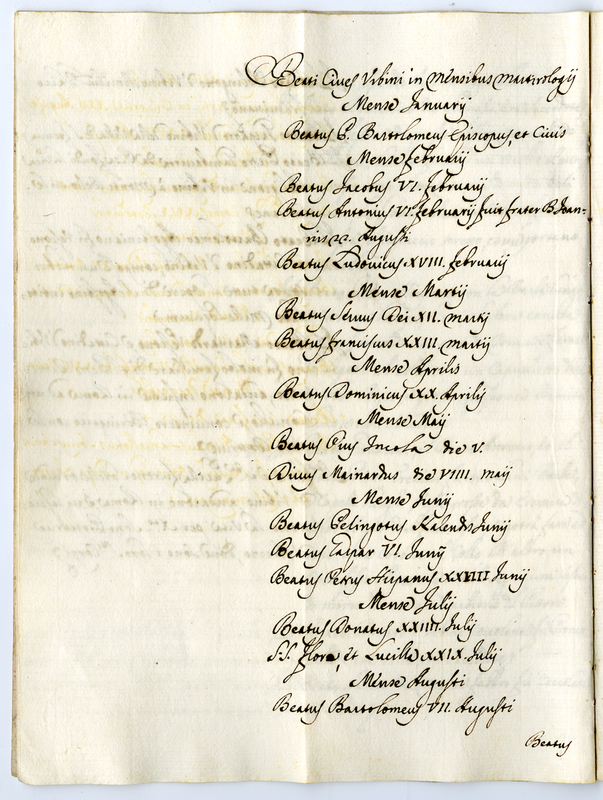 Beati Cives Urbini in mensibus martirologij
Mense Januarij
Beatus B. Bartolomeus Episcopus, et Civis
Mense februarij
Beatus Jacobus VI. februarij
Beatus Antonius VI. februarij fuit frater B. Joan-
nis 22. Augusti
Beatus Ludovicus XVIII. februarij
Mense Martij
Beatus Servus Dei XII. martij
Beatus franciscus XXIII. martij
Mense Aprilis
Beatus Dominicus XX. Aprilij
Mense Maij
Beatus Pius Incola die V.
Divus Mainardus die VIIII. maij
Mense Junij
Beatus Pelingotus Kalendis Junij
Beatus Gaspar VI. Junij
Beatus Petrus Hispanus Junij
Mense Julij
Beatus Donatus XXIIII. Julij
S.S. Flora, et Lucilla XXIX. Julij
Mense Augusti
Beatus Bartolomeus VII. Augusti
Beatus